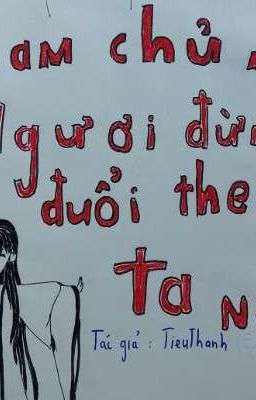 am chủ
gươi đừn
đuổi the
Ta N
Tác giả : TieuThanh